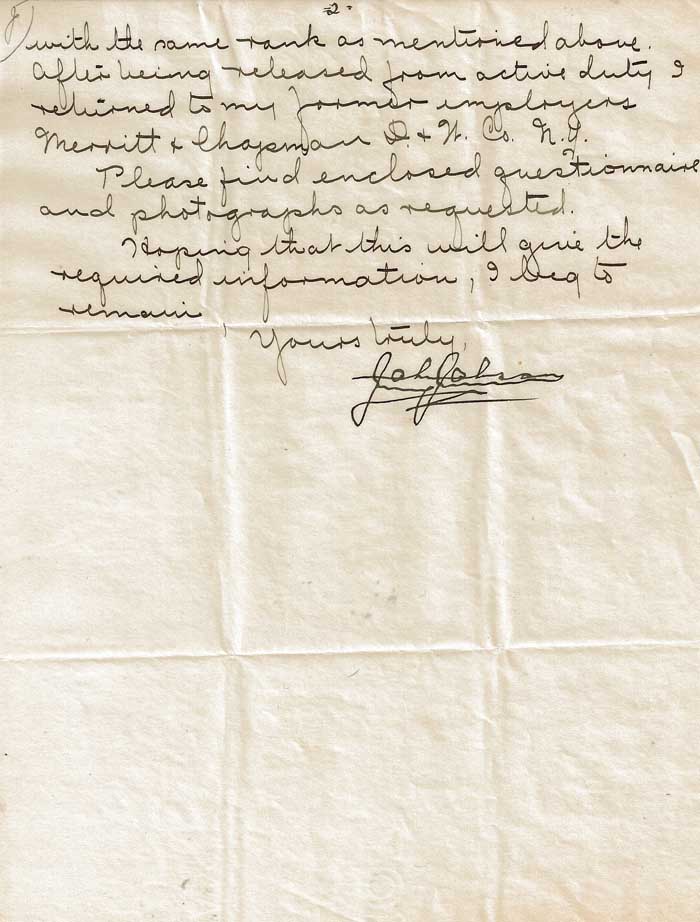 -2-
with the same rank as mentioned above.
After being released from active duty I
returned to my former employers
Merritt & Chapman D. & W. Co. N.Y.
Please find enclosed questionnaire
and photographs as requested.
Hoping that this will give the
required information, I beg to
remain
Yours truly,